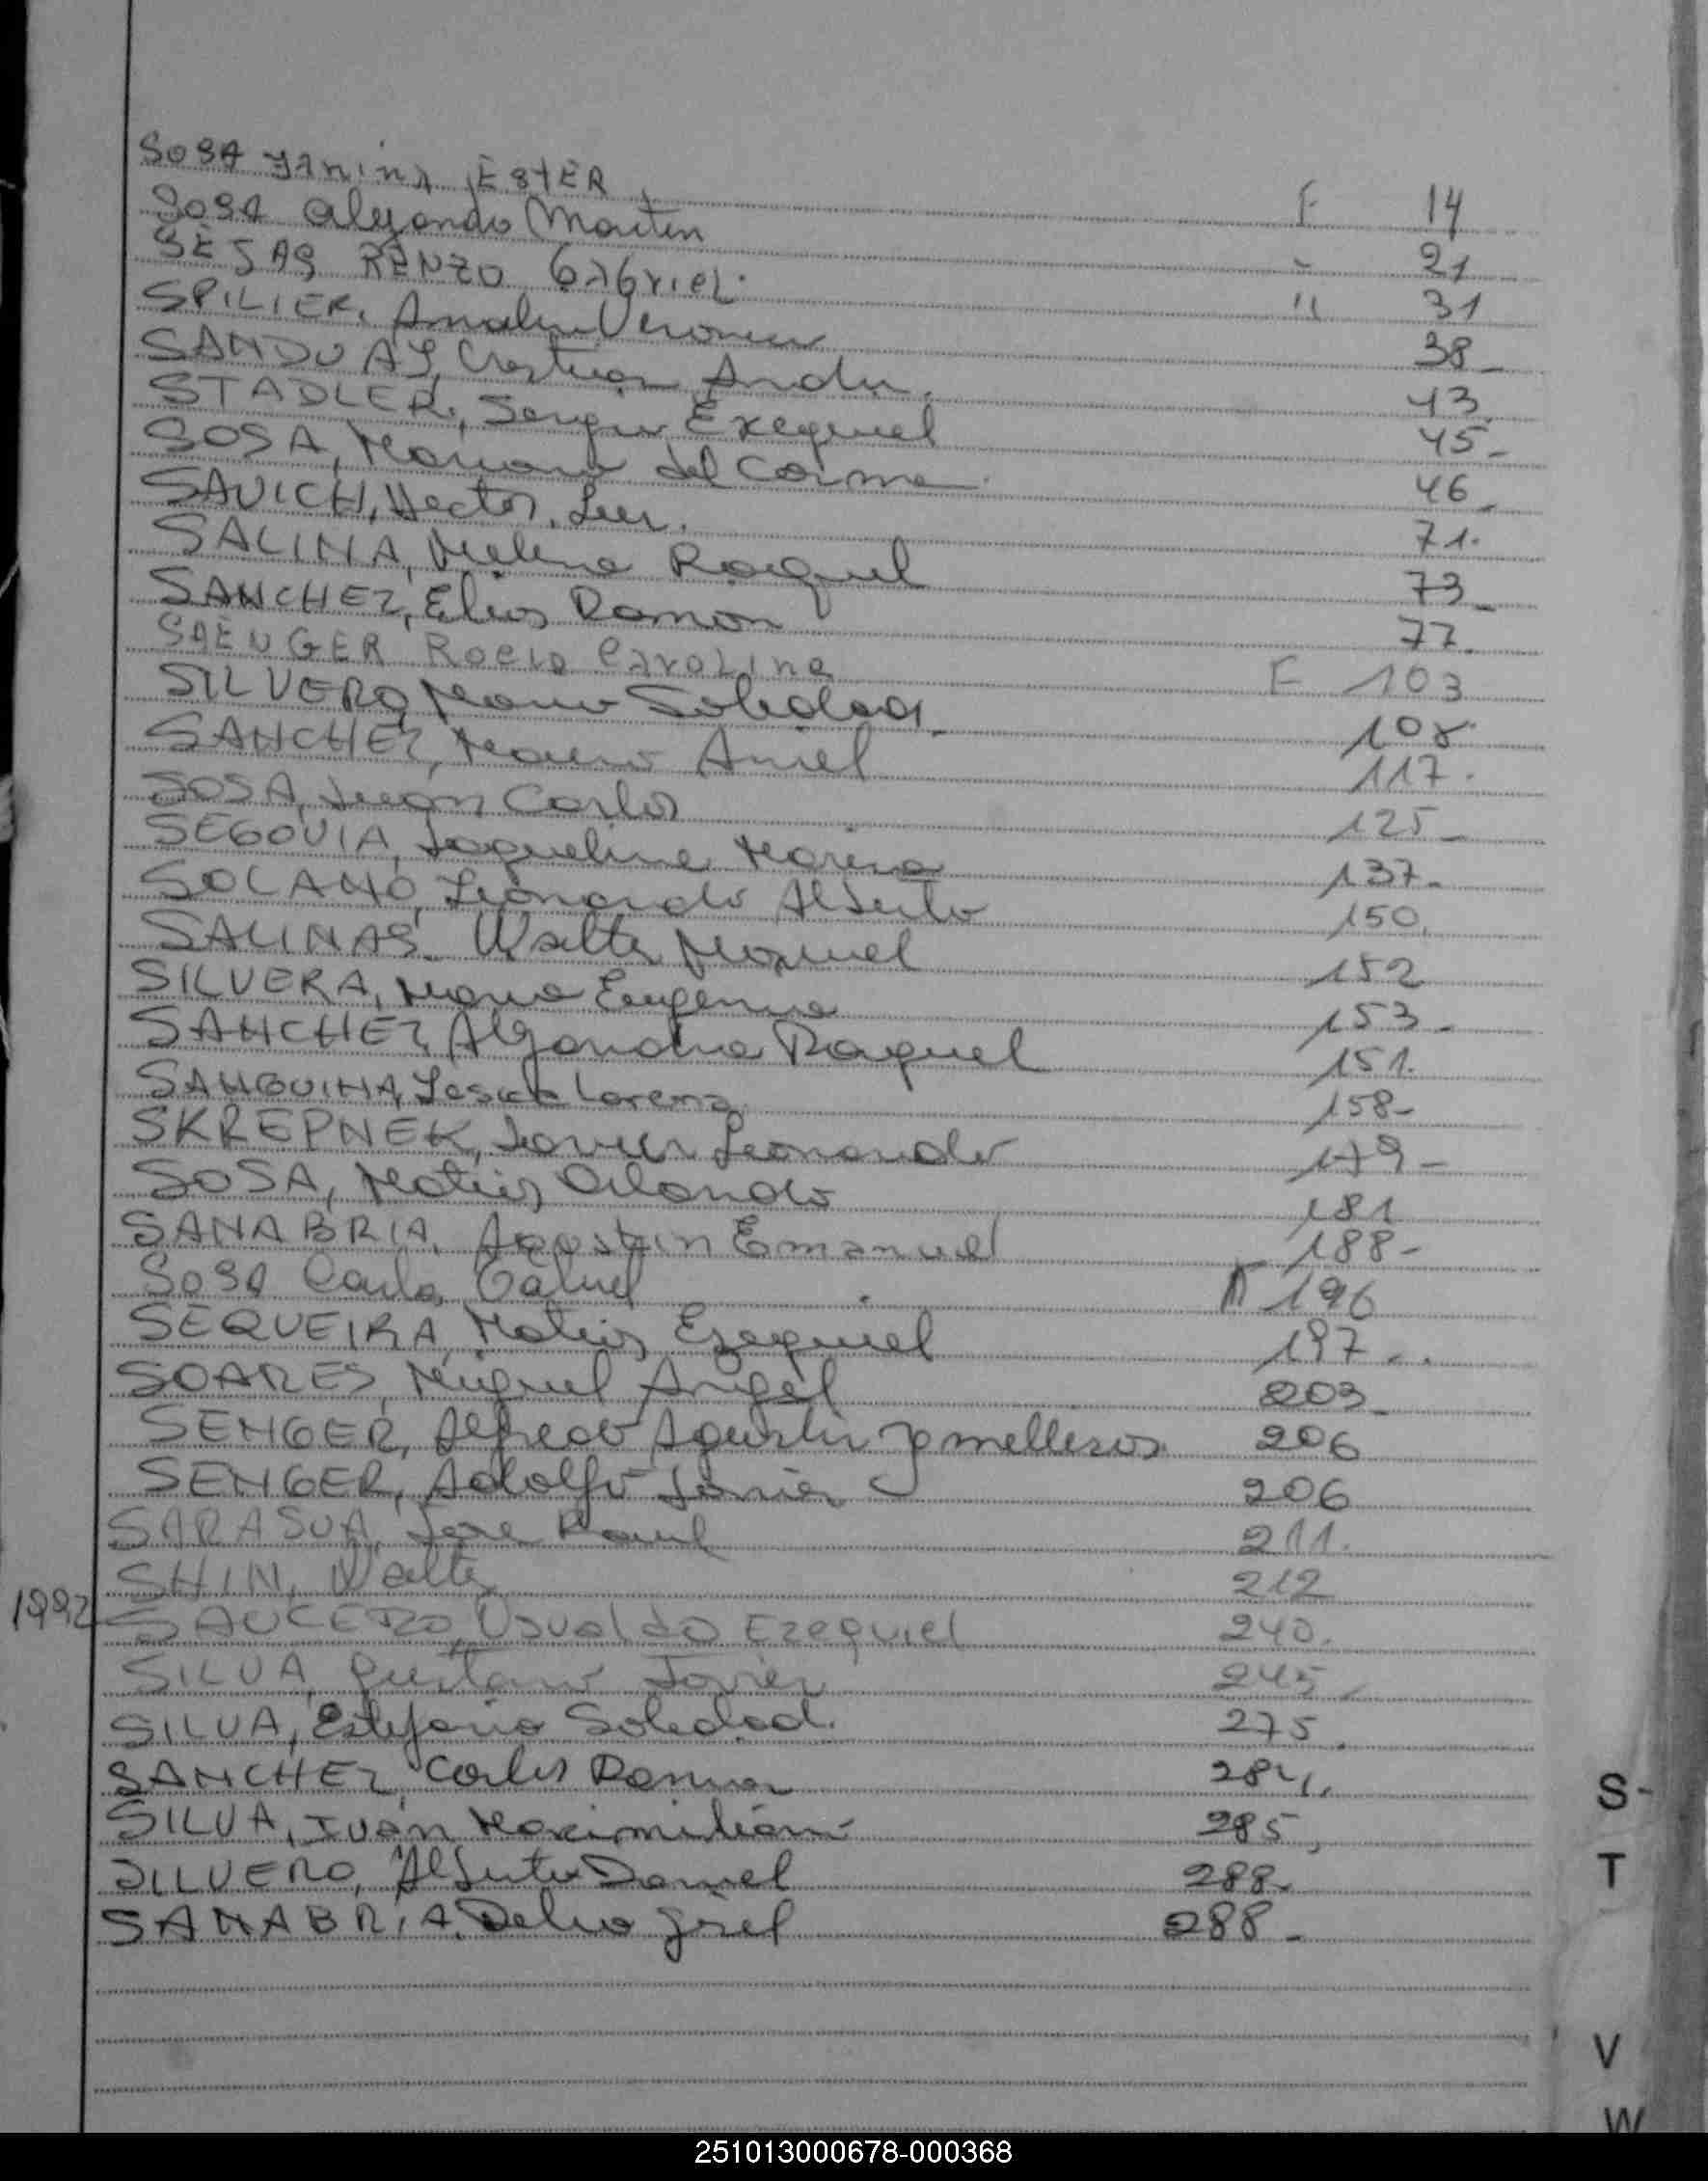 SOSA Yanina ESTER F 14
SOSA Alejandro Martin " 21
SESAS RENZO GABRIEL. " 31
SPILIER, Analia Veronica 38-
SANDOVAL, Cristian Andres. 43.
STADLER, Sergio Exequiel 45-
SOSA, Mariana del Carmen. 46-
SAVICH, Hector, Luis. 71.
SALINA, Milena Raquel 73-
SANCHEZ, Elias Ramon 77.
SAENGER Rocio Carolina F 103
SILVERO, Maria Soledad. 108.
SANCHEZ, Mario Ariel 117.
SOSA, Juan Carlos 125-
SEGOVIA, Jaqueline Marina 137-
SOLANO, Leonardo Alberto 150.
SALINAS Walter Manuel 152
SILVERA, Maria Eugenia 153-
SANCHEZ, Alejandra Raquel 151.
SANGUINA, Lorena 158-
SKREPNEK, Javier Leonardo 179-
SOSA, Matias Orlando 181
SANABRIA, Agustin Emanuel 188-
Sosa Carlos Gabriel 196
SEQUEIRA, Matias Ezequiel 197..
SOARES, Miguel Angel 203-
SENGER, Alfredo Agustin y mellizos 206
SENGER, Adolfo Javier 206
SARASUA, Jose Raul 211.
SHIN, Walter 212
1992 SAUCEDO, Osvaldo Ezequiel 240.
SILVA, Gustavo Javier 245-
SILVA, Estefania Soledad. 275.
SANCHEZ, Carlos Damian 284.
SILVA, Iván Maximiliano 285,
SILVERO, Alberto Daniel 288.
SANABRIA, Delia 288-
S-
T
V
W
251013000678-000368